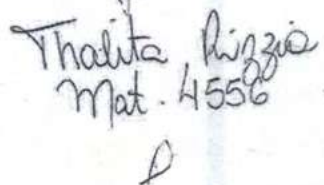 Thalita Rizzia
Mat. 4556